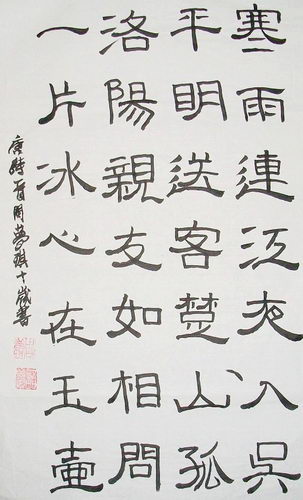 寒雨連江夜入吳
平明送客楚山孤
洛陽親友如相問
一片冰心在玉壺
唐詩一首周夢琪十歲書